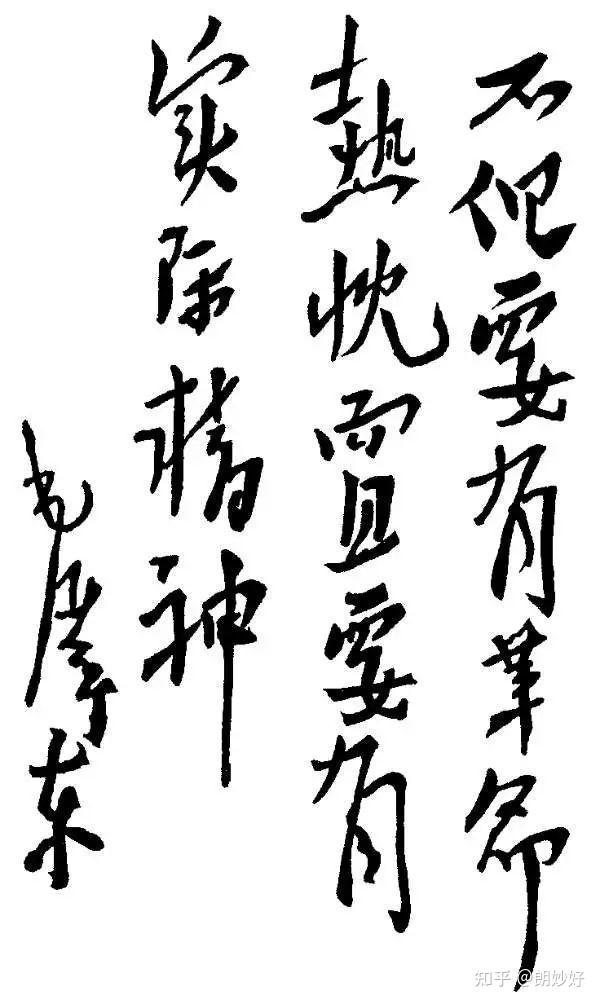 不但要有革命
熱忱而且要有
实际精神
毛泽东
知乎 @朗妙好